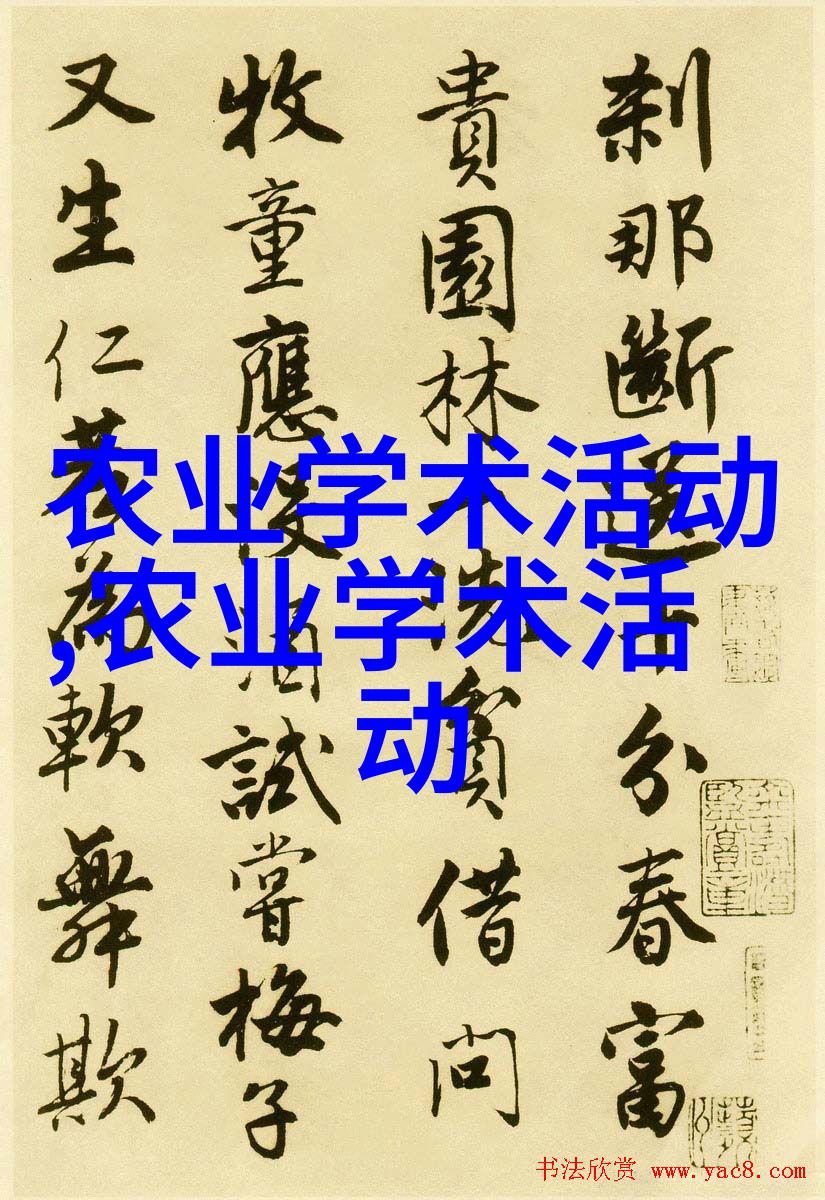 刹那斷送十分春富
貴園林一洗貧借問
牧童應沒酒試嘗梅子
又生仁若為軟舞欺
农业学术活动
,农业学术活
动
书法欣赏 www.yac8.com